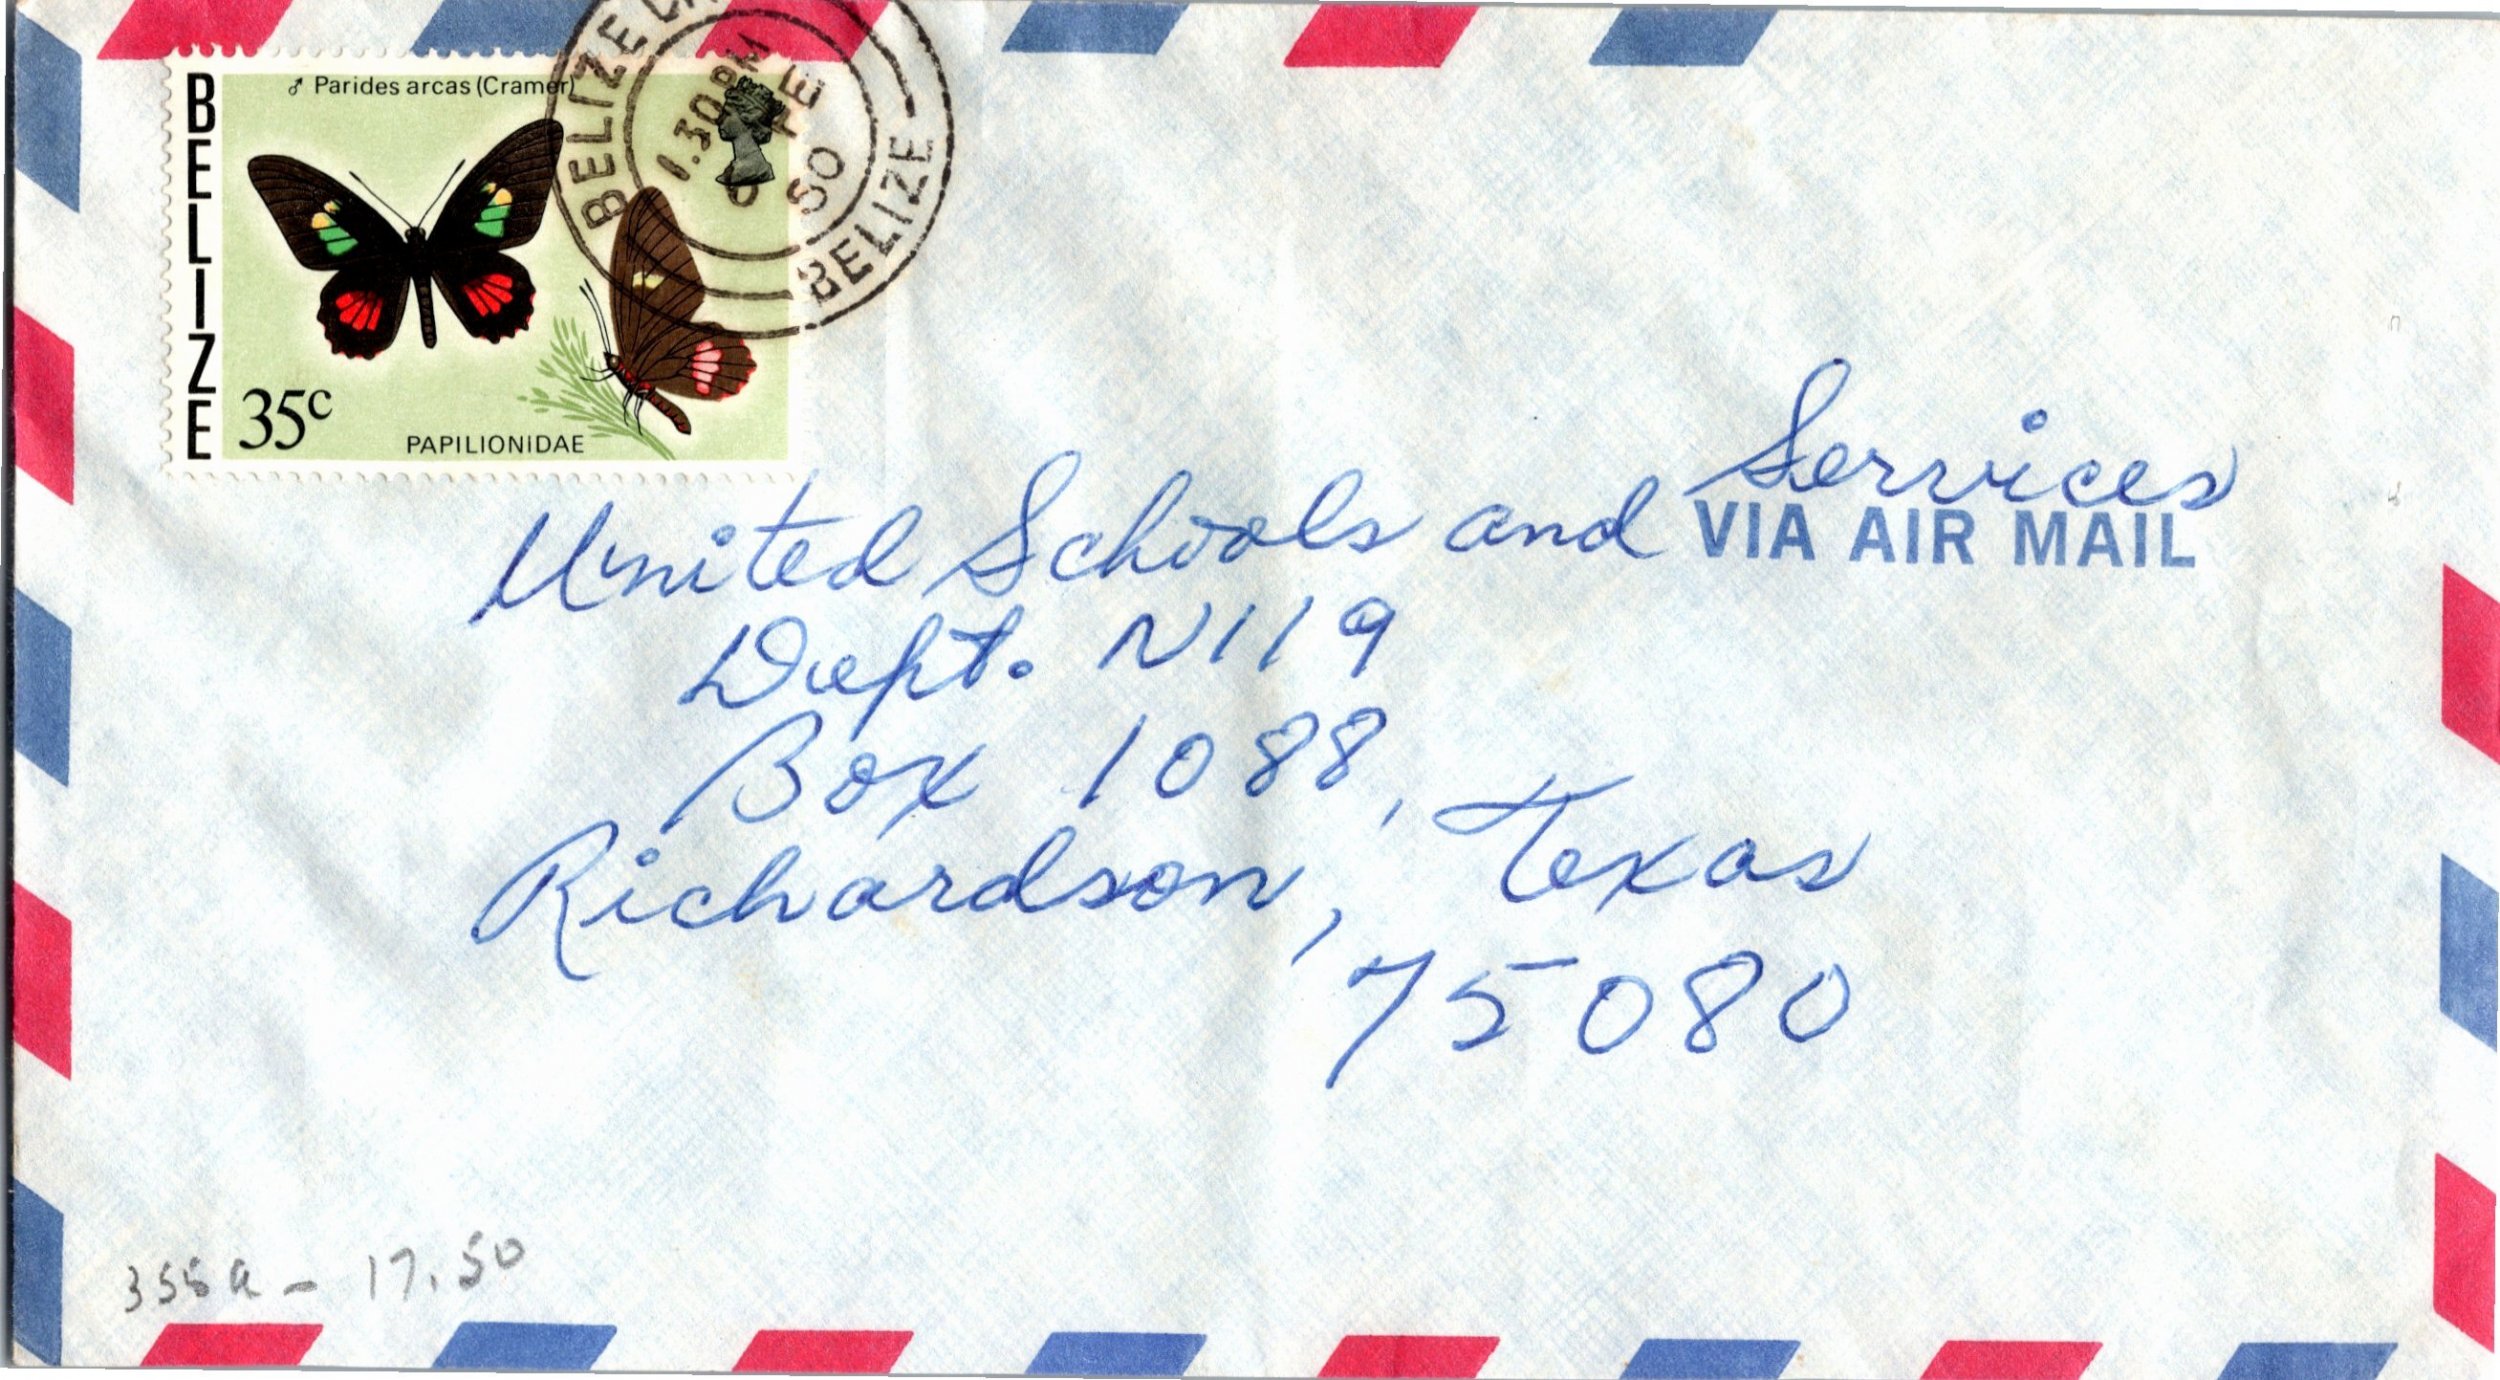 BELIZE
♂ Parides arcas (Cramer)
35c
PAPILIONIDAE
BELIZE
1.30 PM
FE
80
BELIZE
United Schools and Services
VIA AIR MAIL
Dept. N119
Box 1088,
Richardson, Texas
75080
355a - 17.50